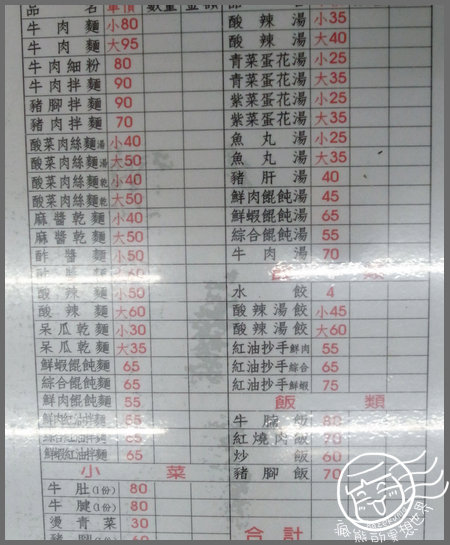 品名 單價 數量 金額
牛肉麵 小80
牛肉麵 大95
牛肉細粉 80
牛肉拌麵 90
豬腳拌麵 90
豬肉拌麵 70
酸菜肉絲麵湯 小40
酸菜肉絲麵湯 大50
酸菜肉絲麵乾 小40
酸菜肉絲麵乾 大50
麻醬乾麵 小40
麻醬乾麵 大50
酢醬麵 小50
酸辣麵 小50
酸辣麵 大60
呆瓜乾麵 小30
呆瓜乾麵 大35
鮮蝦餛飩麵 65
綜合餛飩麵 65
鮮肉餛飩麵 55
鮮肉紅油拌麵 55
綜合紅油拌麵 65
鮮蝦紅油拌麵 65
小菜
牛肚(1份) 80
牛腱(1份) 80
燙青菜 30
豬腳(1份) 60
酸辣湯 小35
酸辣湯 大40
青菜蛋花湯 小25
青菜蛋花湯 大35
紫菜蛋花湯 小25
紫菜蛋花湯 大35
魚丸湯 小25
魚丸湯 大35
豬肝湯 40
鮮肉餛飩湯 45
鮮蝦餛飩湯 65
綜合餛飩湯 55
牛肉湯 70
類
水餃 4
酸辣湯餃 小45
酸辣湯餃 大60
紅油抄手鮮肉 55
紅油抄手綜合 65
紅油抄手鮮蝦 75
飯類
牛腩飯 80
紅燒肉飯 70
炒飯 60
豬腳飯 70
合計
瘋熊的異想世界